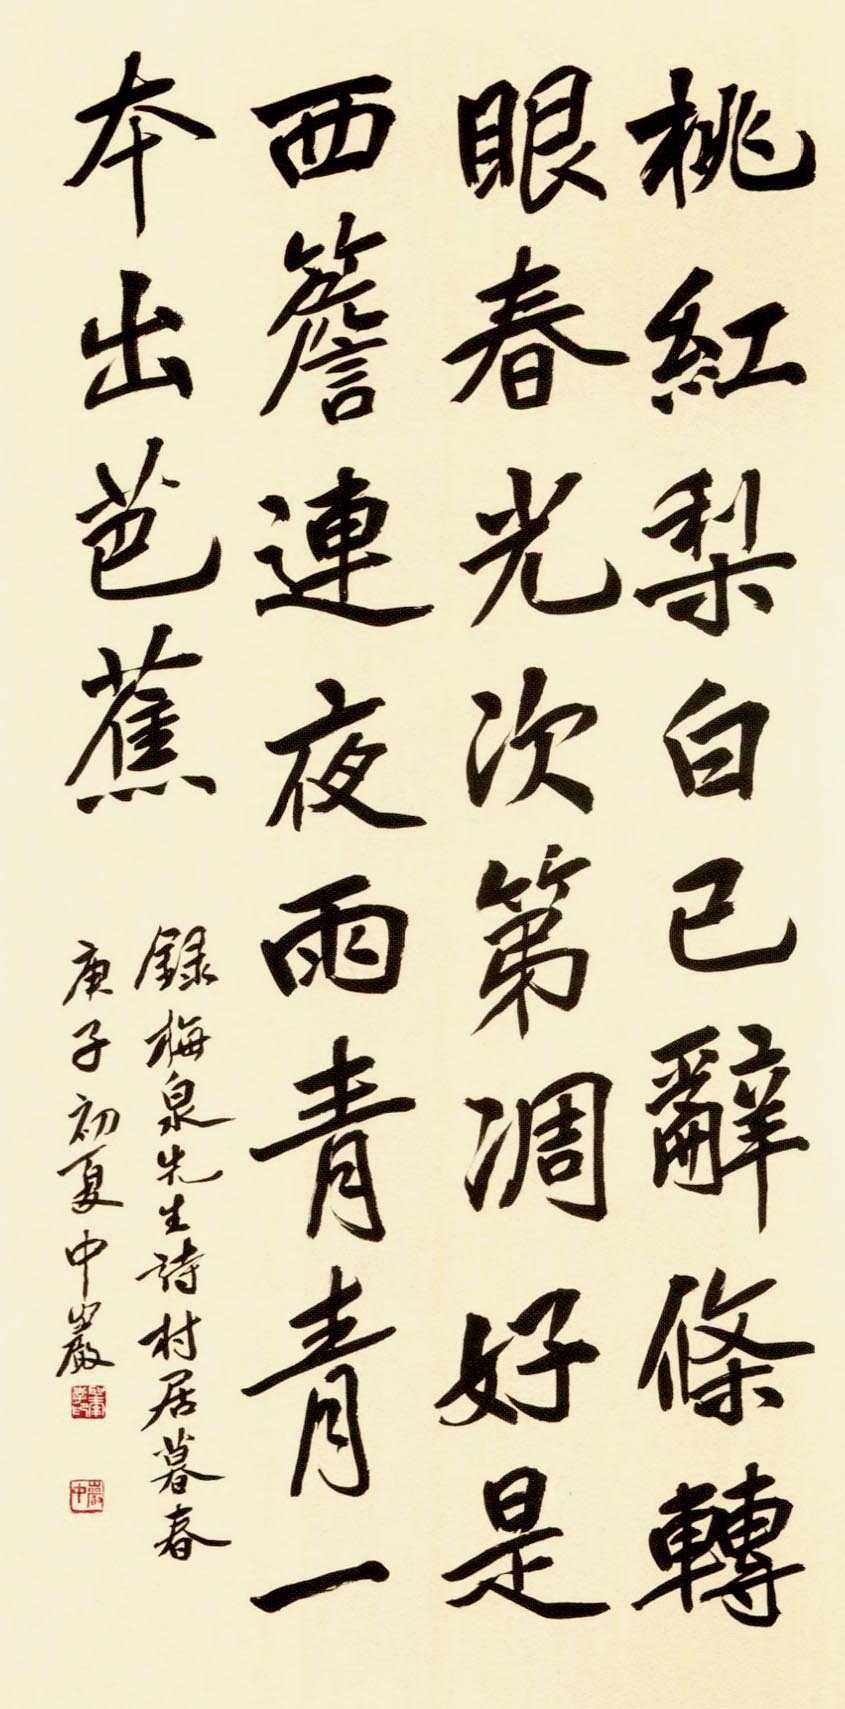 桃紅梨白已辭條轉
眼春光次第凋好是
西簷連夜雨青青一
本出芭蕉
録梅泉先生詩村居暮春
庚子初夏中巖